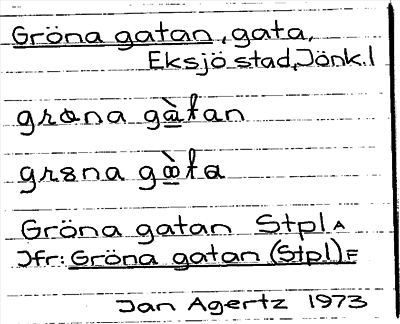 Gröna gatan, gata,
Eksjö stad, Jönk.l
grɵna gàtan
gr8na gòta
Gröna gatan Stpl A
Jfr: Gröna gatan (Stpl) E
Jan Agertz 1973